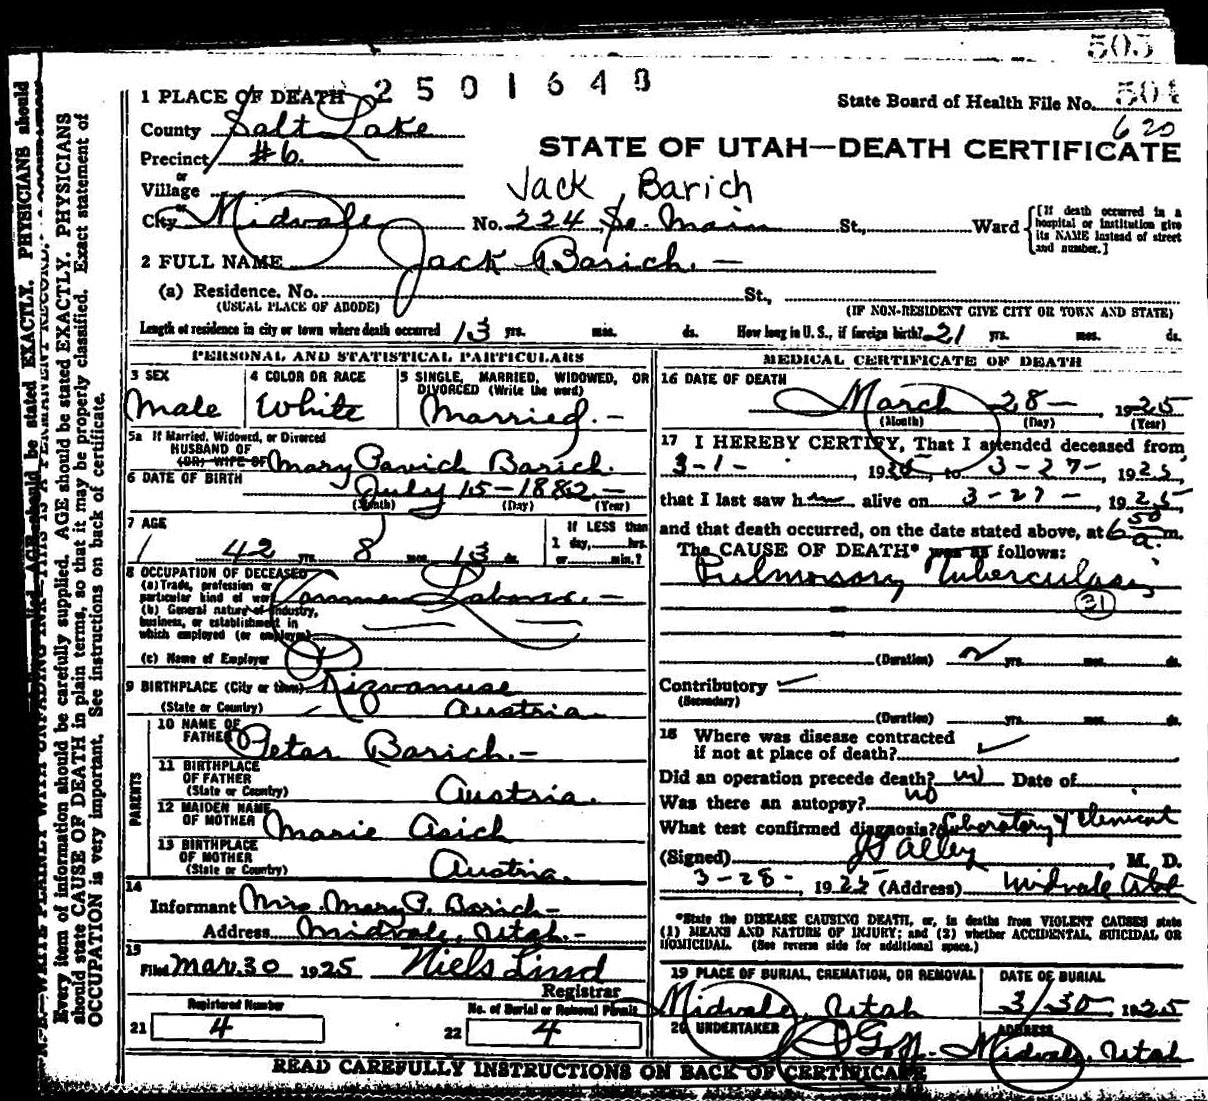 505
2501640
1 PLACE OF DEATH
State Board of Health File No. 504
620
County Salt Lake
STATE OF UTAH—DEATH CERTIFICATE
Precinct #6.
or
Village
Jack Barich
City Midvale No. 224 So. Main St., Ward
[If death occurred in a hospital or institution give its NAME instead of street and number.]
2 FULL NAME Jack Barich. —
(a) Residence. No. St.,
(USUAL PLACE OF ABODE) (IF NON-RESIDENT GIVE CITY OR TOWN AND STATE)
Length of residence in city or town where death occurred 13 yrs. mos. ds. How long in U. S., if foreign birth? 21 yrs. mos. ds.
PERSONAL AND STATISTICAL PARTICULARS
3 SEX 4 COLOR OR RACE 5 SINGLE, MARRIED, WIDOWED, OR DIVORCED (Write the word)
Male White Married. —
5a If Married, Widowed, or Divorced
HUSBAND OF
(OR) WIFE OF Mary Pavich Barich.
6 DATE OF BIRTH July 15 - 1882. —
(Month) (Day) (Year)
7 AGE If LESS than
1 day, hrs.
42 yrs. 8 mos. 13 ds. or min.?
8 OCCUPATION OF DECEASED
(a) Trade, profession or
particular kind of work Common Laborer. —
(b) General nature of industry,
business, or establishment in
which employed (or employer)
(c) Name of Employer
9 BIRTHPLACE (City or town)
(State or Country) Austria
PARENTS
10 NAME OF
FATHER Petar Barich. —
11 BIRTHPLACE
OF FATHER
(State or Country) Austria.
12 MAIDEN NAME
OF MOTHER Marie Asich
13 BIRTHPLACE
OF MOTHER
(State or Country) Austria.
14
Informant Mrs. Mary P. Barich —
Address Midvale, Utah. —
15
Filed Mar. 30 1925 Niels Lind
Registrar
Registered Number No. of Burial or Removal Permit
21 4 22 4
MEDICAL CERTIFICATE OF DEATH
16 DATE OF DEATH
March 28 — , 1925
(Month) (Day) (Year)
17 I HEREBY CERTIFY, That I attended deceased from
3-1- , 19 to 3-27- 1925,
that I last saw him alive on 3-27-, 1925
and that death occurred, on the date stated above, at 6 50 a. m.
The CAUSE OF DEATH* was as follows:
Pulmonary Tuberculosis
31
(Duration) 2 yrs. mos. ds.
Contributory
(Secondary)
(Duration) yrs. mos. ds.
18 Where was disease contracted
if not at place of death?
Did an operation precede death? no Date of
Was there an autopsy? no
What test confirmed diagnosis? Laboratory & Clinical
(Signed) Alley , M. D.
3-28-, 1925 (Address) Midvale Utah
*State the DISEASE CAUSING DEATH, or, in deaths from VIOLENT CAUSES state
(1) MEANS AND NATURE OF INJURY; and (2) whether ACCIDENTAL, SUICIDAL OR
HOMICIDAL. (See reverse side for additional space.)
19 PLACE OF BURIAL, CREMATION, OR REMOVAL DATE OF BURIAL
Midvale, Utah 3/30, 1925
20 UNDERTAKER ADDRESS
Goff — Midvale, Utah
READ CAREFULLY INSTRUCTIONS ON BACK OF CERTIFICATE
Every item of information should be carefully supplied. AGE should be stated EXACTLY. PHYSICIANS
should state CAUSE OF DEATH in plain terms, so that it may be properly classified. Exact statement of
OCCUPATION is very important. See instructions on back of certificate.